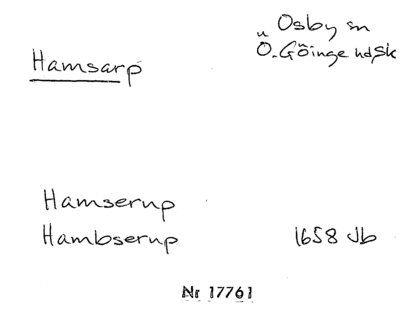 Osby sn
Hamsarp
Ö. Göinge hd, Sk
Hamserup
Hambserup 1658 Jb
Nr 17761